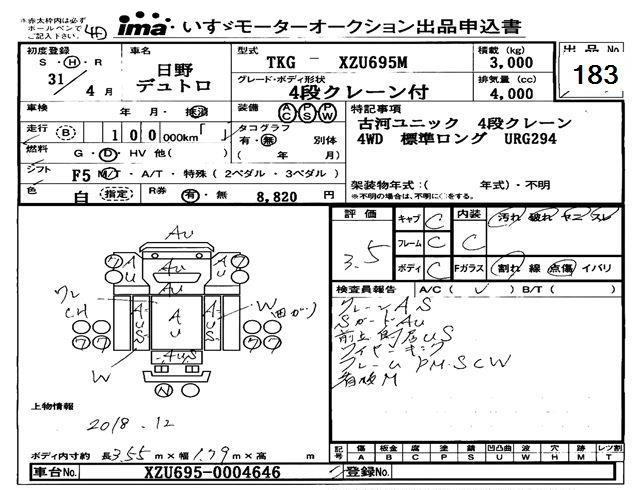 ※赤太枠内は必ず
ボールペンで
ご記入下さい。
ima いすゞモーターオークション出品申込書
初度登録 車名 型式 積載 (kg) 出品No.
S・H・R 日野 TKG - XZU695M 3,000 183
31 4月 デュトロ グレード・ボディ形状 排気量 (cc)
4段クレーン付 4,000
車検 年 月・抹消 装備 AC PS PW 特記事項
走行 B 100 000km「 」 タコグラフ 古河ユニック 4段クレーン
有・無 別体 4WD 標準ロング URG294
燃料 G・D・HV 他( ) ( 年 月)
シフト F5 MT・A/T・特殊(2ペダル・3ペダル) 架装物年式:( 年式)・不明
色 白 指定 R券 有・無 8,820 円 ※不明の場合は、不明に○をする。
評価 キャブ C 内装 汚れ 破れ ヤニ スレ
3.5 フレーム C C
ボディ C Fガラス 割れ 線 点傷 イバリ
検査員報告 A/C( ) B/T( )
クレーンAS
SガードAu
フレームPM.SCW
看板M
Au
Au
Au
AuS
AuS
AuS
W
W
上物情報
2018.12
ボディ内寸約 長3.55m×幅1.79m×高 m
記号 傷 板金 腐 塗 錆 凹凸曲 波 穴 跡 レツ割
A B C P S U W H M T
車台No. XZU695-0004646 登録No.